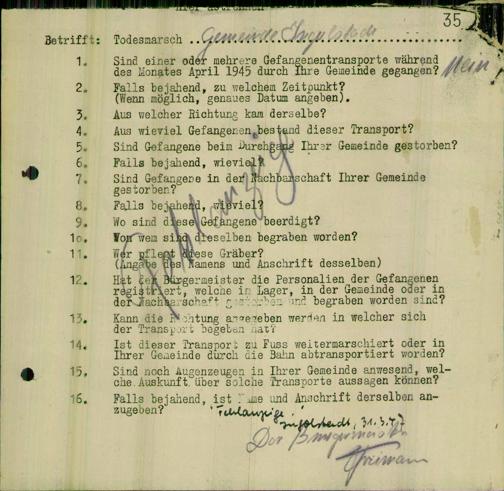 35
Betrifft: Todesmarsch .. Gemeinde Ingolstadt
1. Sind einer oder mehrere Gefangenentransporte während
des Monates April 1945 durch Ihre Gemeinde gegangen? Nein
2. Falls bejahend, zu welchem Zeitpunkt?
(Wenn möglich, genaues Datum angeben).
3. Aus welcher Richtung kam derselbe?
4. Aus wieviel Gefangenen bestand dieser Transport?
5. Sind Gefangene beim Durchgang Ihrer Gemeinde gestorben?
6. Falls bejahend, wieviel?
7. Sind Gefangene in der Nachbarschaft Ihrer Gemeinde
gestorben?
8. Falls bejahend, wieviel?
9. Wo sind diese Gefangene beerdigt?
10. Von wem sind dieselben begraben worden?
11. Wer pflegt diese Gräber?
(Angabe des Namens und Anschrift desselben)
12. Hat der Bürgermeister die Personalien der Gefangenen
registriert, welche im Lager, in der Gemeinde oder in
der Nachbarschaft gestorben und begraben worden sind?
13. Kann die Richtung angegeben werden in welcher sich
der Transport begeben hat?
14. Ist dieser Transport zu Fuss weitermarschiert oder in
Ihrer Gemeinde durch die Bahn abtransportiert worden?
15. Sind noch Augenzeugen in Ihrer Gemeinde anwesend, wel-
che Auskunft über solche Transporte aussagen können?
16. Falls bejahend, ist Name und Anschrift derselben an-
zugeben? "Fehlanzeige."
Fehlanzeige
Ingolstadt, 31.3.47
Der Bürgermeister